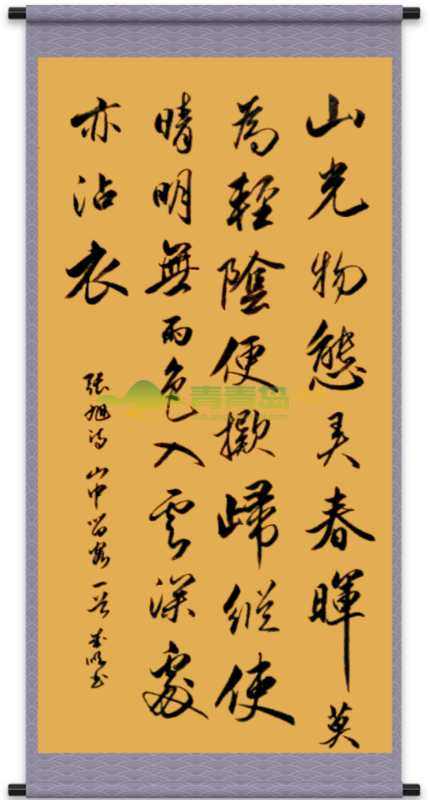 山光物態弄春暉莫
為輕陰便擬歸縱使
晴明無雨色入雲深處
亦沾衣
張旭詩 山中留客 一首
青青岛